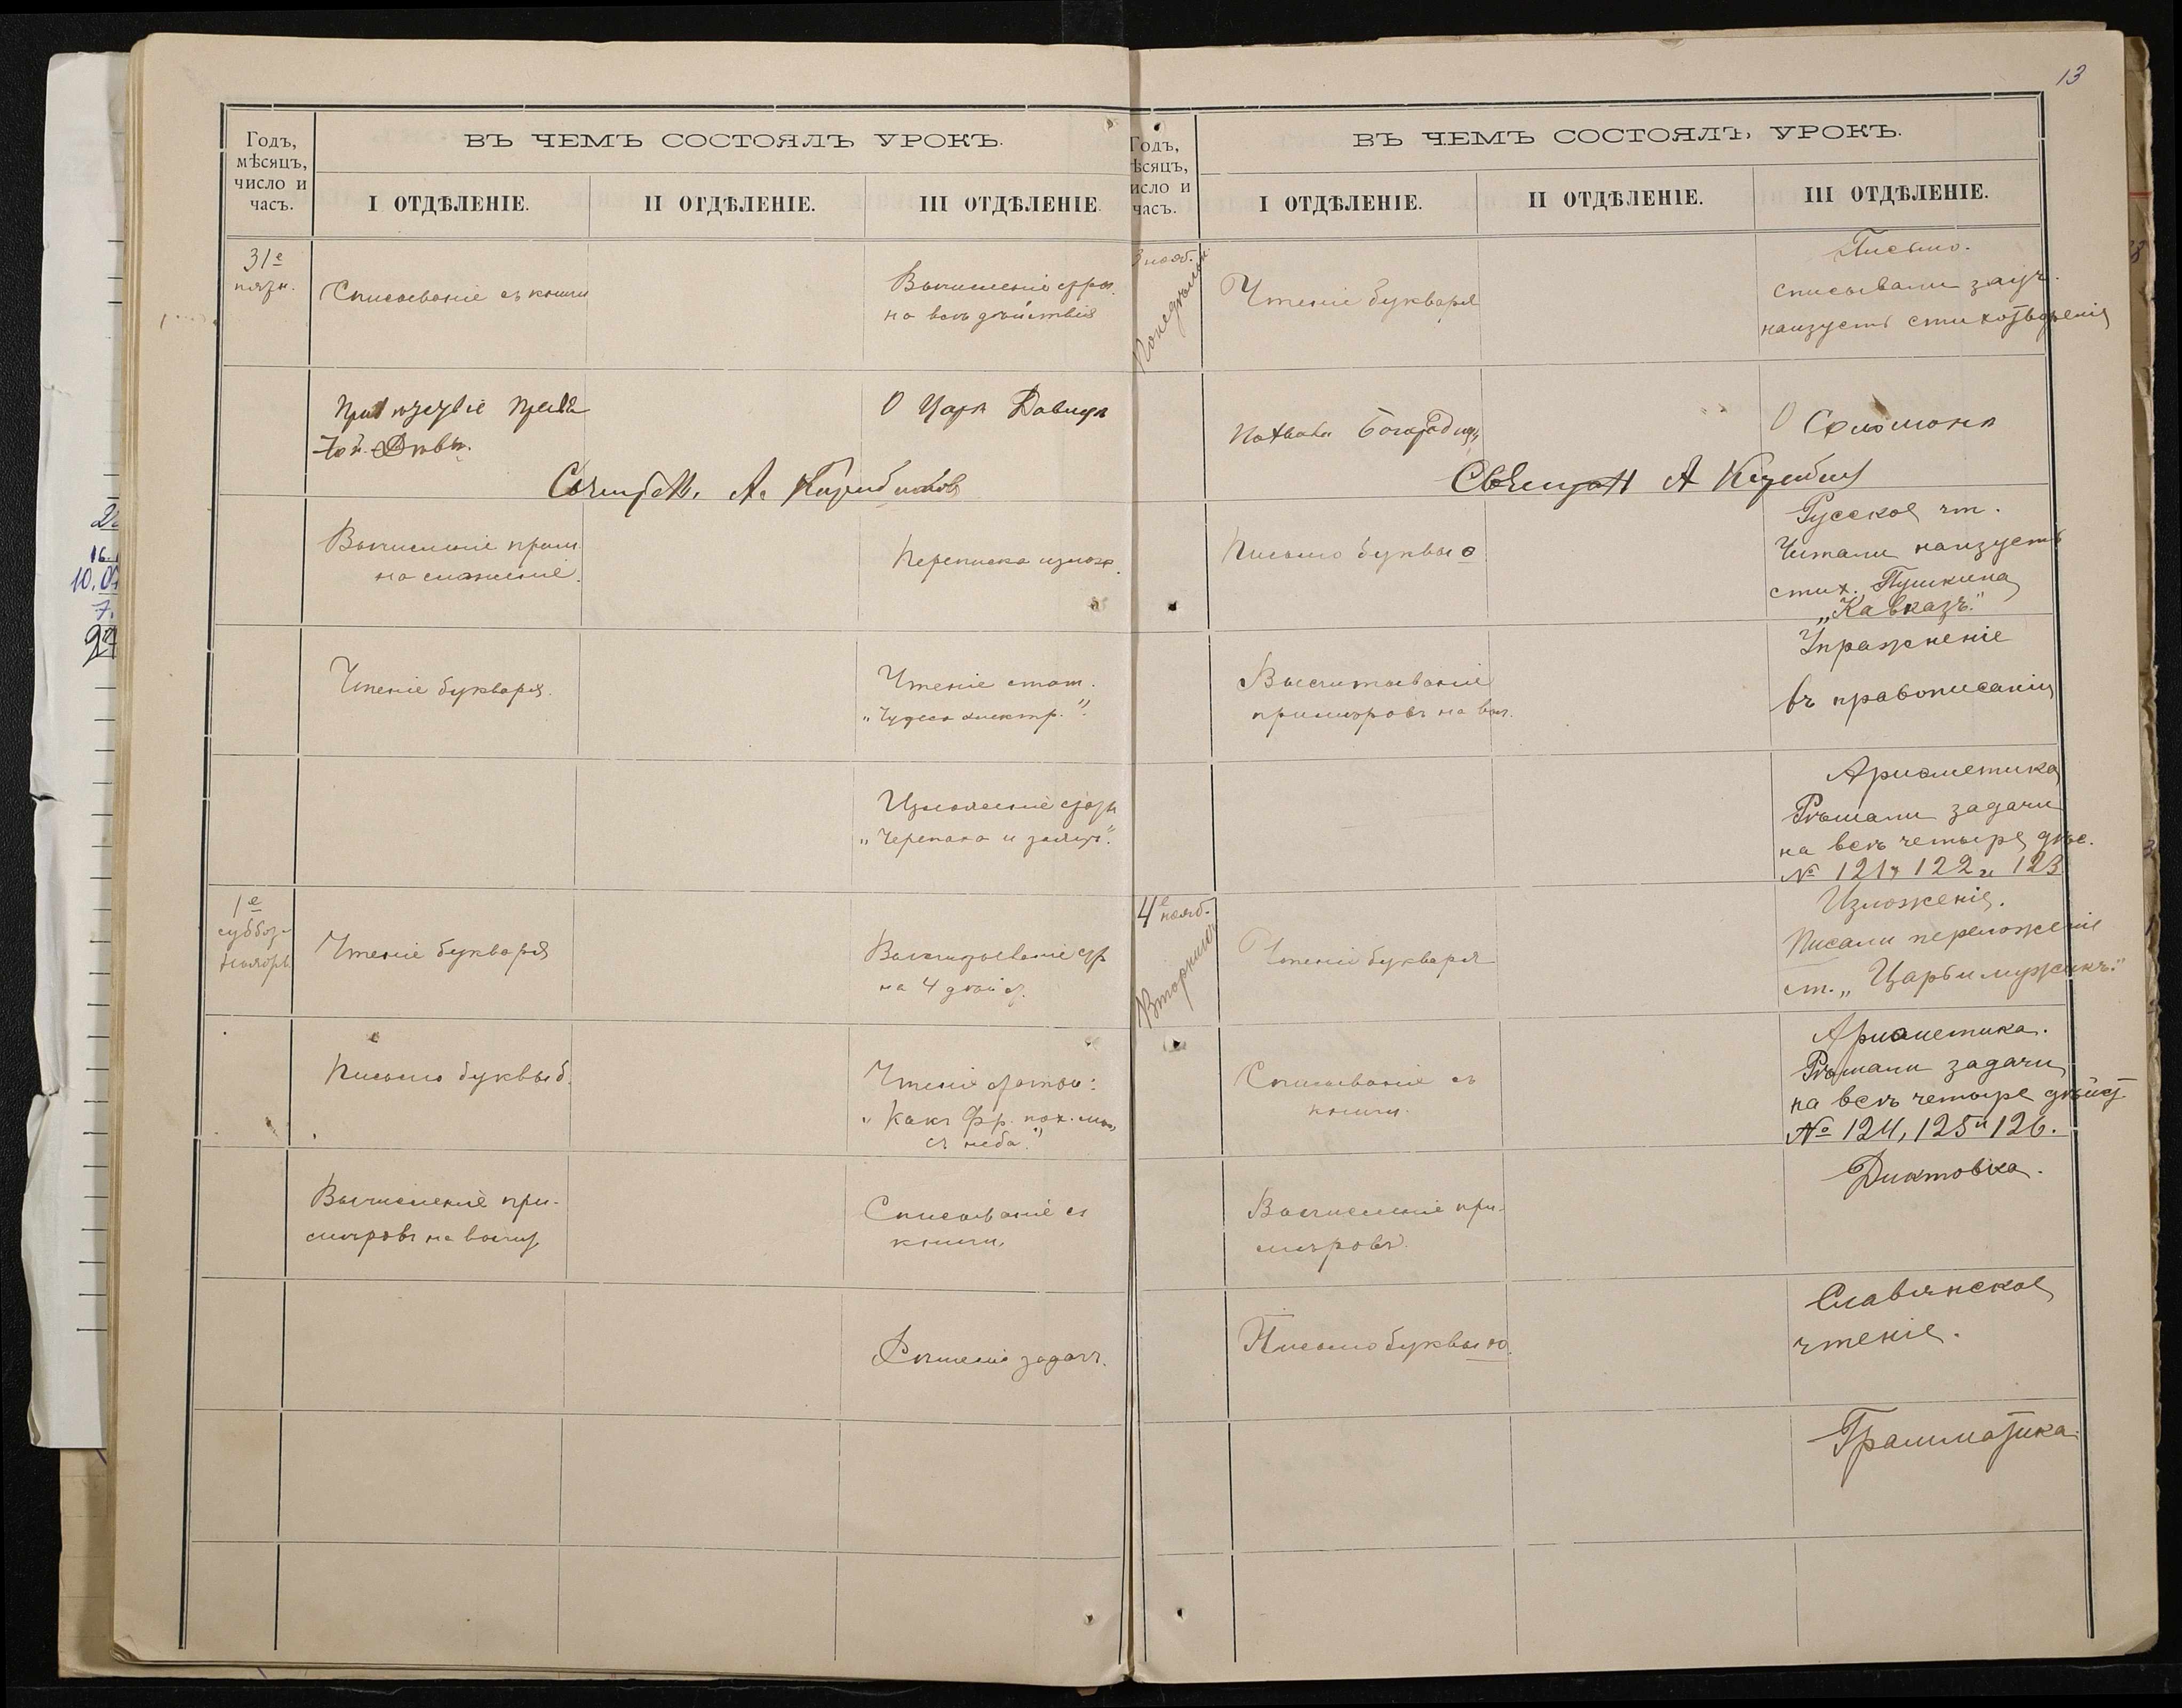 13
Годъ,
мѣсяцъ,
число и
часъ.
ВЪ ЧЕМЪ СОСТОЯЛЪ УРОКЪ.
I ОТДѢЛЕНІЕ.
II ОТДѢЛЕНІЕ.
III ОТДѢЛЕНІЕ.
31е
пятн.
Списываніе съ книги
Вычисленіе
на всѣ дѣйствія
О Царѣ Давидѣ
А.
Вычисленіе прим.
на сложеніе.
Переписка излож.
Чтеніе букваря.
Чтеніе стат.
„Чудеса электр.".
Изложеніе
„Черепаха и заяцъ".
1е
суббот.
Ноября
Чтеніе букваря
Высчитываніе
на 4 дѣйст.
Письмо буквы б.
Чтеніе статьи:
„Какъ Фр. пох.
съ неба."
Вычисленіе при-
мѣровъ на вычит.
Списываніе съ
книги.
Рѣшеніе задачъ.
Годъ,
ѣсяцъ,
исло и
часъ.
ВЪ ЧЕМЪ СОСТОЯЛЪ УРОКЪ.
I ОТДѢЛЕНІЕ.
II ОТДѢЛЕНІЕ.
III ОТДѢЛЕНІЕ.
3 нояб.
Понедѣльник
Чтеніе букваря
Письмо.
списывали зауч.
наизусть стихотворенія
Похвала Богородицы
О Соломонѣ
Священ А
Письмо буквы о
Русское чт.
Читали наизусть
стих. Пушкина
„Кавказъ."
Высчитываніе
примѣровъ на выч.
Упражненіе
въ правописаніи
Ариѳметика
Рѣшали задачи
на всѣ четыре дѣс.
№ 121, 122 и 123
4е нояб.
Вторникъ
Чтеніе букваря
Изложеніе.
Писали переложеніе
ст. „Царь и мужикъ."
Списываніе съ
книги.
Ариѳметика.
Рѣшали задачи
на всѣ четыре дѣйст.
№ 124, 125 и 126.
Вычисленіе при-
мѣровъ.
Диктовка.
Письмо буквы ю.
Славянское
чтеніе.
Грамматика.